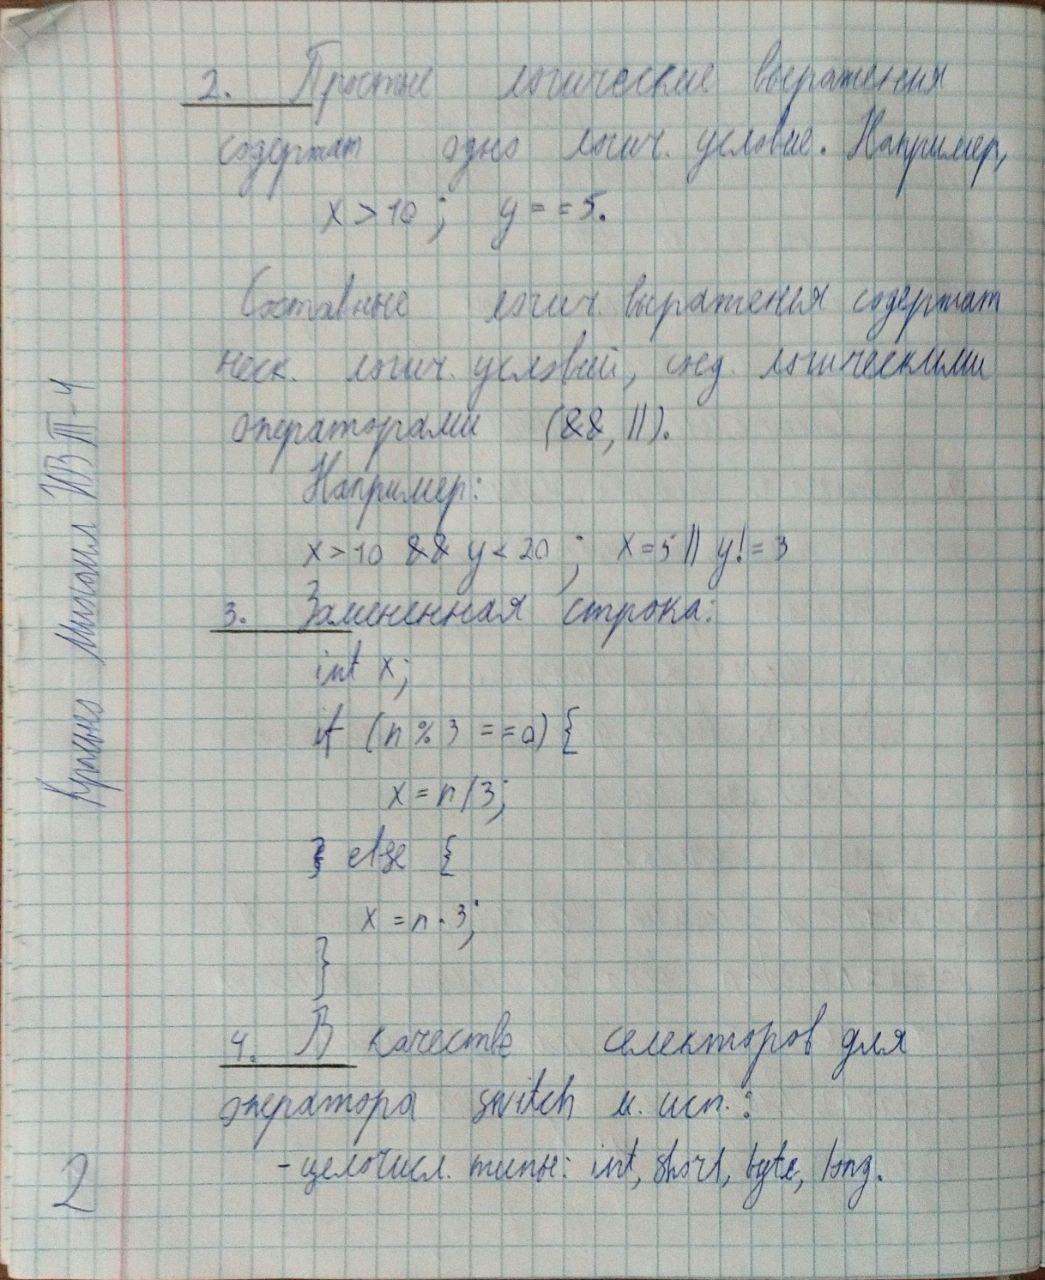 2. Простые логические выражения
содержат одно логич. условие. Например,
x > 10 ; y = = 5.
Составные логич. выражения содержат
неск. логич. условий, соед. логическими
операторами (&&, ||).
Например:
x > 10 && y < 20 ; x = 5 || y! = 3
3. Замененная строка:
int x;
if (n % 3 = = 0) {
x = n / 3;
} else {
x = n · 3;
}
4. В качестве селекторов для
оператора switch м. исп. :
- целочисл. типы: int, short, byte, long.
Михаил ИВТ-4
2